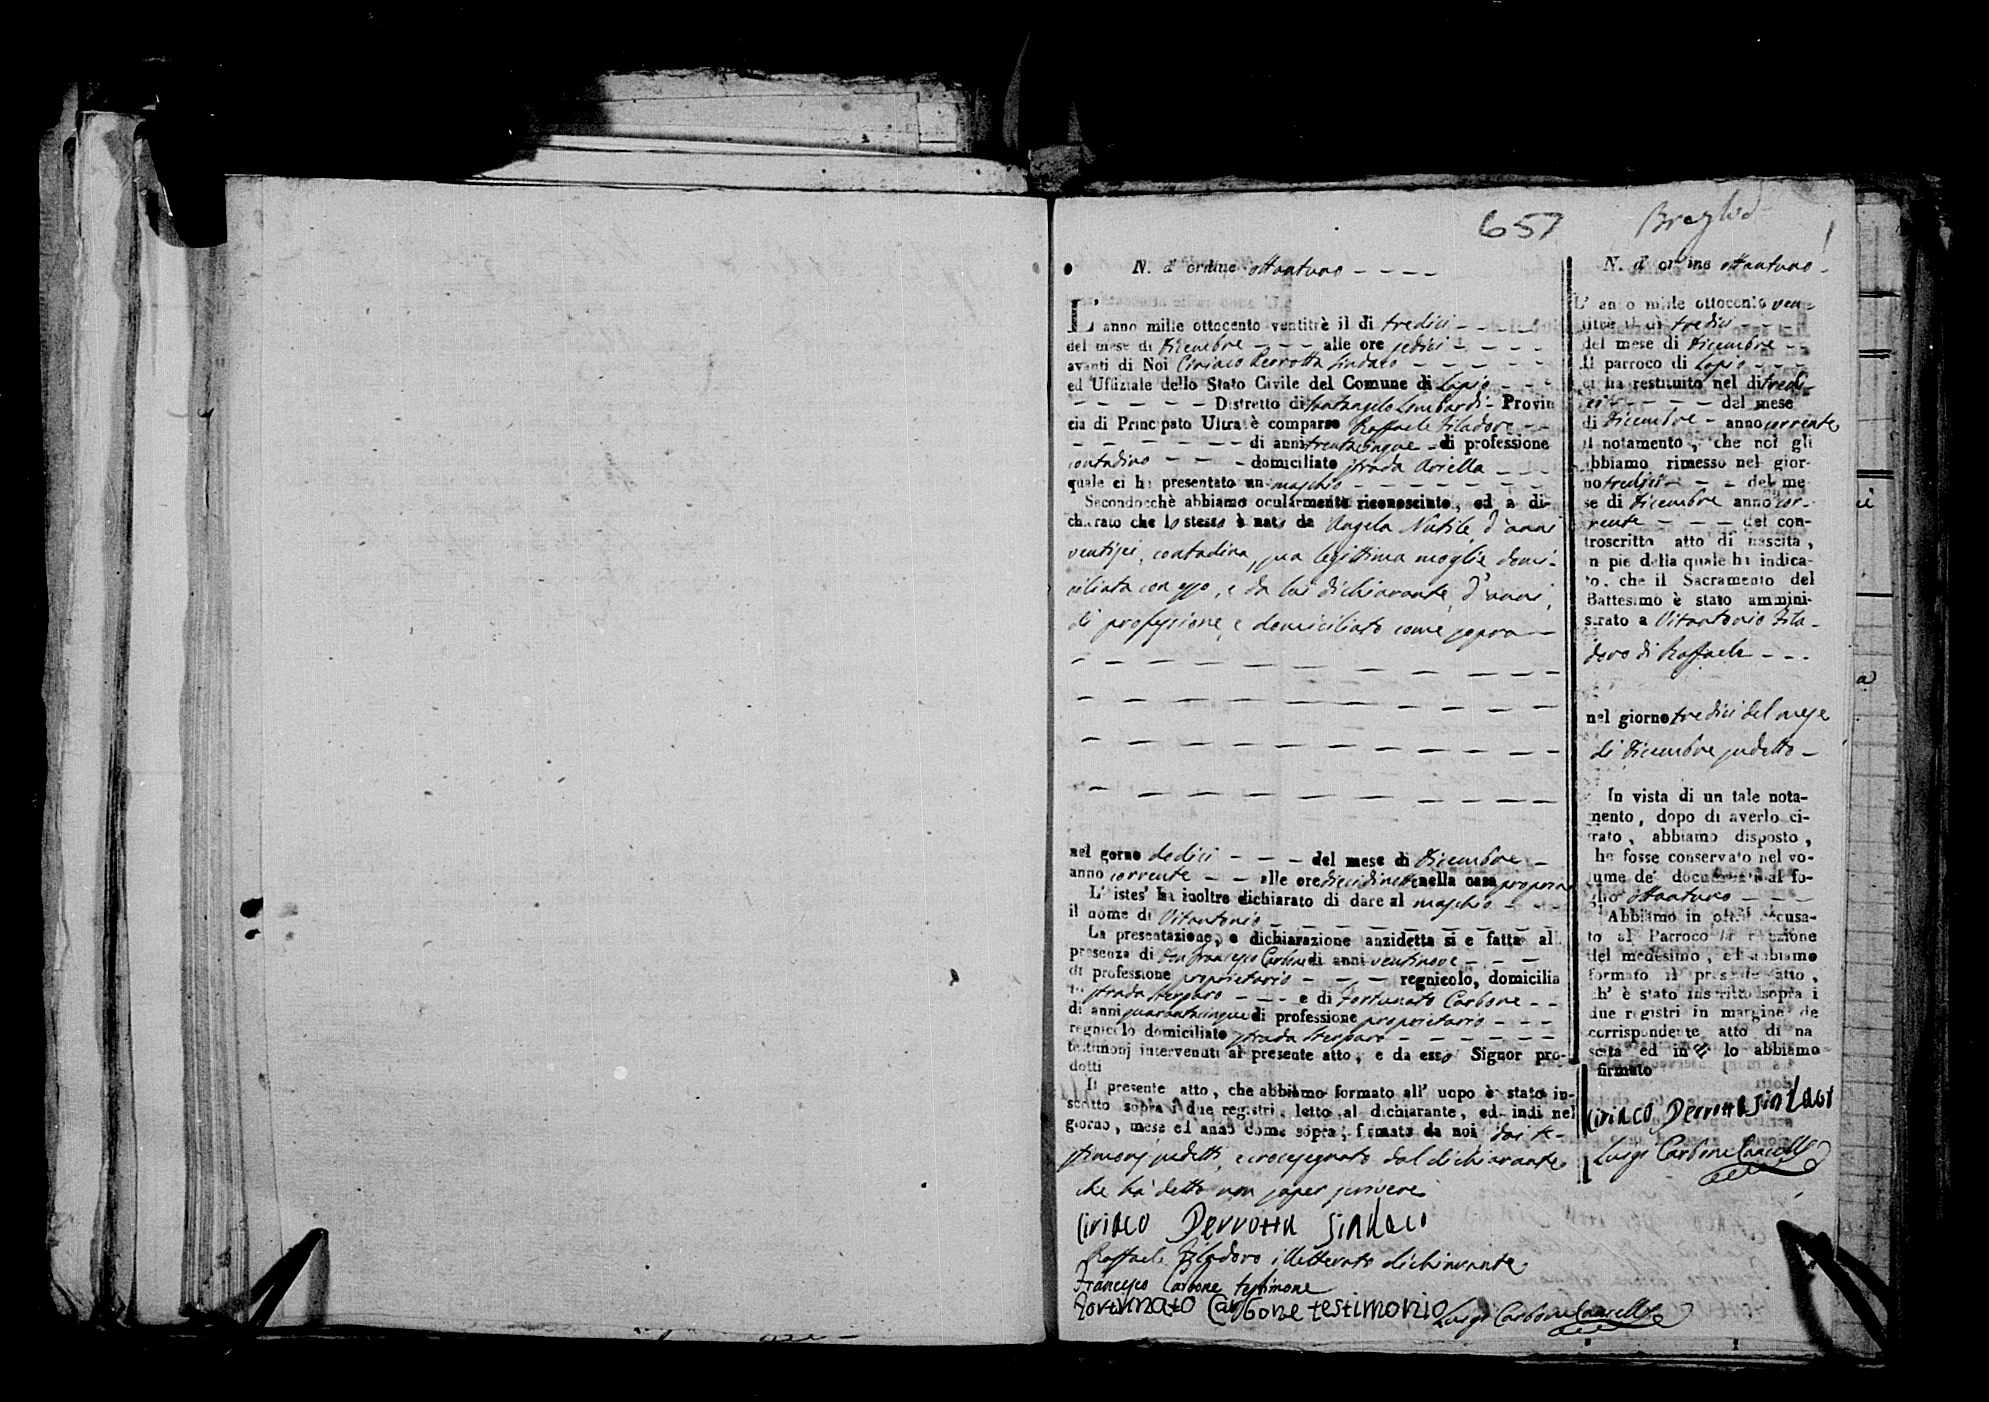 657
N. d' ordine ottantuno - - - -
L' anno mille ottocento ventitrè il dì tredici - - - -
del mese di Dicembre - - - alle ore sedici - - - -
avanti di Noi Ciriaco Perrotta Sindaco - - - -
ed Uffiziale dello Stato Civile del Comune di Lapio - - -
- - - - - Distretto di Santangelo Lombardi - Provin
cia di Principato Ultra è comparso Raffaele Filadoro - -
- - - - - - di anni trentacinque - di professione
contadino - - - - domiciliato strada Ariella - - -
quale ci ha presentato un maschio - - - - - -
Secondocchè abbiamo ocularmente riconosciuto, ed a di-
chiarato che lo stesso è nato da Angela Nutile d'anni
ventisei, contadina, sua legittima moglie domi-
ciliata con esso, e da lui dichiarante, d'anni,
di professione, e domiciliato come sopra -
nel gorno dodici - - - del mese di Dicembre -
anno corrente - - alle ore diecidinette nella casa propria
L' istes' ha inoltre dichiarato di dare al maschio - - -
il nome di Vitantonio - - - - - -
La presentazione, e dichiarazione anzidetta si e fatta all
presenza di Don Francesco Carbone di anni ventinove - - -
di professione proprietario - - - regnicolo, domicilia
to strada Sterparo - - - e di Fortunato Carbone - -
di anni quarantacinque di professione proprietario - - -
regnicolo domiciliato strada Sterparo - - - - - -
testimonj intervenuti al presente atto, e da esso Signor pro-
dotti
Il presente atto, che abbiamo formato all' uopo è stato in-
scritto sopra i due registri, letto al dichiarante, ed indi nel
giorno, mese ed anno come sopra, firmato da noi dai te-
stimonj sudetti, e crocesegnato dal dichiarante
che ha detto non saper scrivere
Ciriaco Perrotta Sindaco
Raffaele Filadoro illetterato dichiarante
Francesco Carbone testimone
Fortunato Carbone testimonio
Luigi Carbone Cancell.
N. d' ordine ottantuno -
L' anno mille ottocento ven-
titre il dì tredici - - -
del mese di Dicembre - -
Il parroco di Lapio - - -
ci ha restituito nel di tredi-
ci - - - - del mese
di Dicembre - anno corrente
il notamento, che noi gli
abbiamo rimesso nel gior-
no tredici - - del me
se di Dicembre anno cor-
rente - - - del con-
troscritto atto di nascita,
in pie della quale ha indica-
to, che il Sacramento del
Battesimo è stato ammini-
strato a Vitantonio Fila-
doro di Raffaele - - -
nel giorno tredici del mese
di Dicembre sudetto -
In vista di un tale nota-
mento, dopo di averlo ci-
frato, abbiamo disposto,
che fosse conservato nel vo-
lume de' documenti al fo-
glio ottantuno - - -
Abbiamo in oltre accusa-
to al Parroco la ricezione
del medesimo, ed abbiamo
formato il presente atto,
ch' è stato inscritto sopra i
due registri in margine de
corrispondente atto di na
scita ed indi lo abbiamo
firmato
Ciriaco Perrotta Sindaco
Luigi Carbone Cancell.